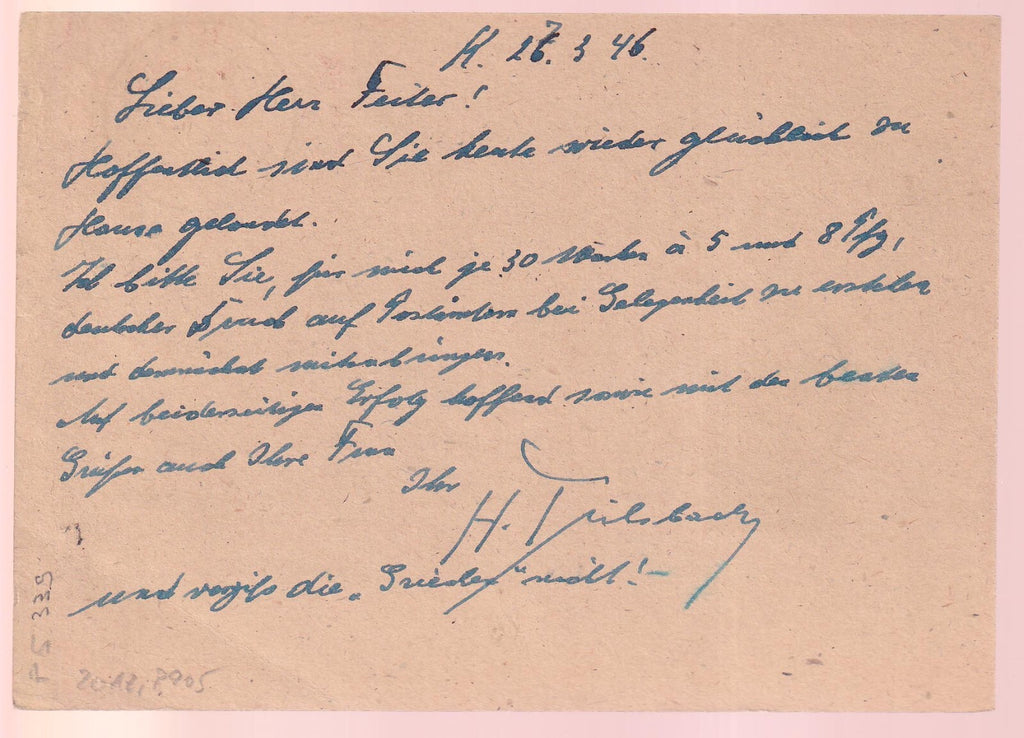 K. 27. 3 46.
Lieber Herr Feiler!
Hoffentlich sind Sie heute wieder glücklich zu
Hause gelandet.
Ich bitte Sie, für mich je 30 Marken à 5 und 8 Pfg,
deutscher Druck auf Postämtern bei Gelegenheit zu erstehen
und demnächst mitzubringen.
Auf beiderseitigen Erfolg hoffend sowie mit den besten
Grüßen auch Ihre Frau
Ihr
H.
und vergiß die „ " nicht! –
339